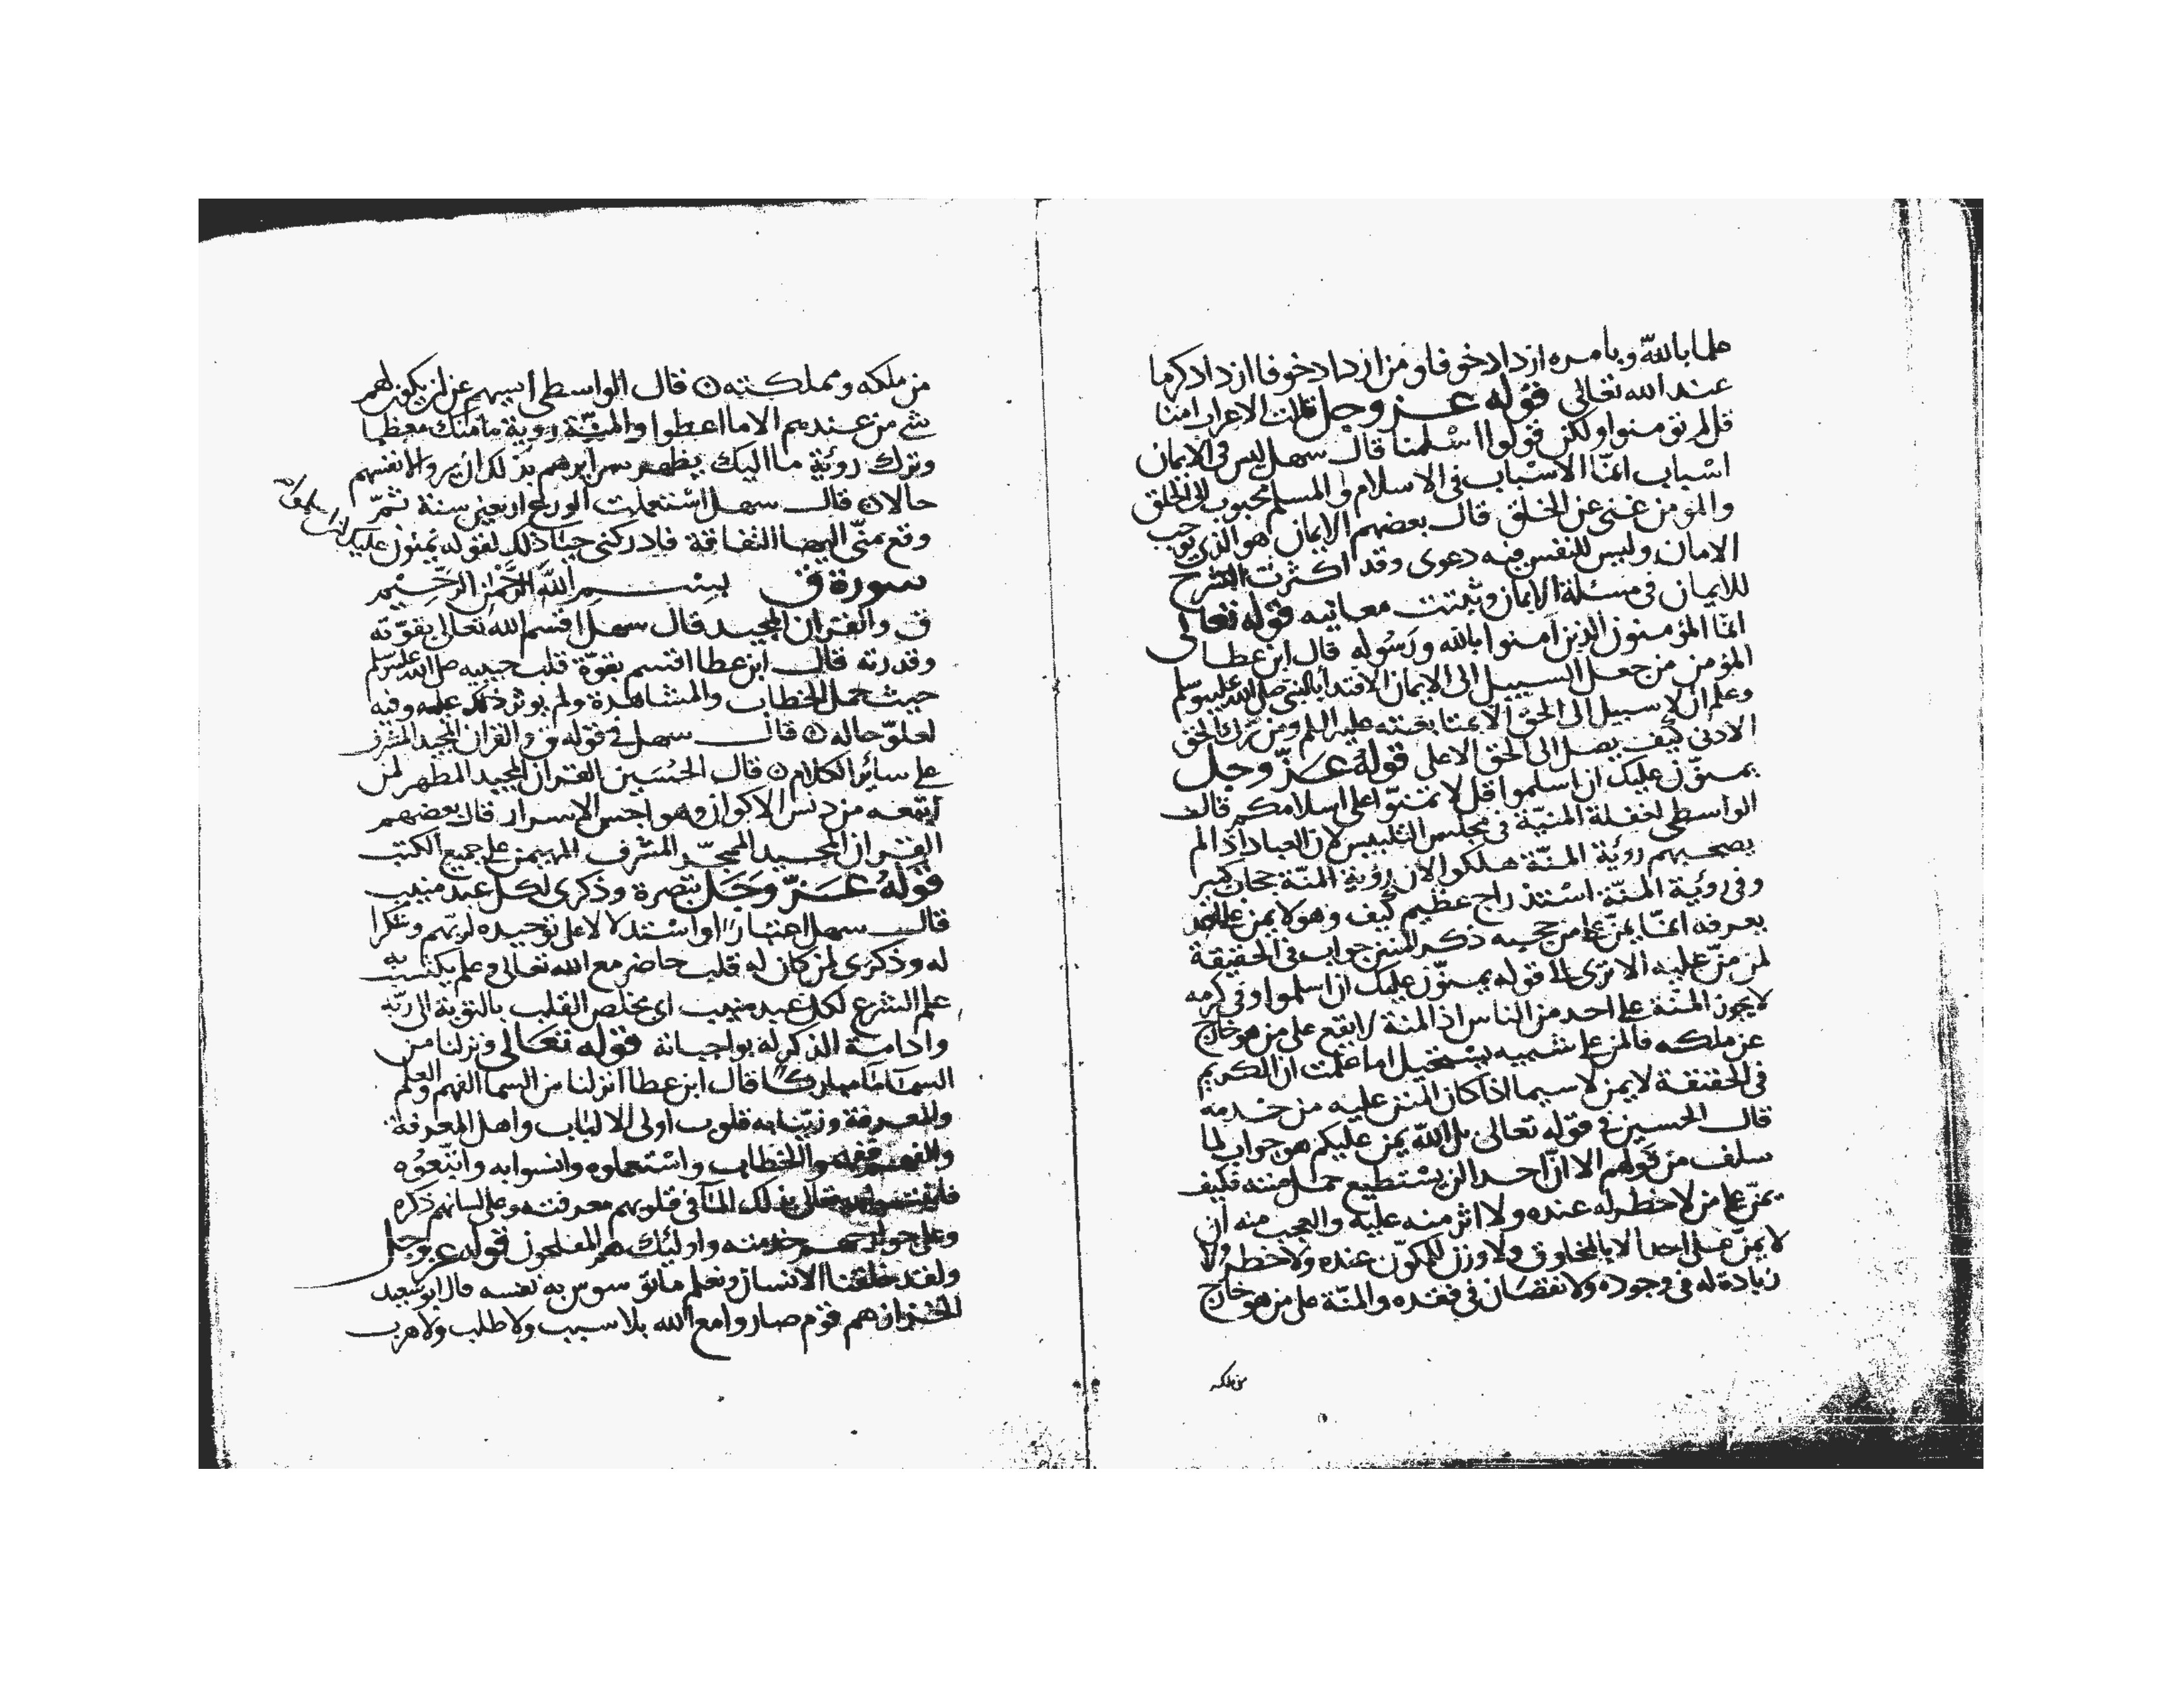 علما بالله وبامره ازداد خوفا ومن ازداد خوفا ازداد كرما
عند الله تعالى قوله عز وجل قالت الاعراب امنا
قل لم تومنوا ولكن قولوا اسلمنا قال سهل ليس في الايمان
اسباب انما الاسباب في الاسلام والمسلم محبوب الى الخلق
والمومن غني عن الخلق قال بعضهم الايمان هو الذي يوجب
الامان وليس للنفس فيه دعوى وقد اكثرت الشرح
للايمان في مسئلة الايمان وثبتت معانيه قوله تعالى
انما المؤمنون الذين آمنوا بالله ورسوله قال ابن عطا
المؤمن من جعل السبيل الى الايمان الاقتدا بالنبي صلى الله عليه وسلم
وعلم ان لا سبيل الى الحق الا بمتابعته عليه السلم ومن ترك الحق
الادنى كيف يصل الى الحق الاعلى قوله عز وجل
يمنون عليك ان اسلموا قل لا تمنوا على اسلامكم قال
الواسطي لغفلة المنية في مجلس التلبيس لان العباد اذا لم
يصحبهم رؤية المنة هلكوا لان رؤية المنة حجاب كبير
وفي رؤية المنة استدراج عظيم كيف وهو لا يمن على
يعرفه انما يمن على من حجبه ذكر المنن جواب في الحقيقة
لمن من عليه الا ترى الى قوله يمنون عليك ان اسلموا وفي كرمه
لا يجوز المنة على احد من الناس اذ المنة لا يقع على من هو خارج
عن ملكه فالمن على شبيه يستحيل اما علمت ان الكريم
في الحقيقة لا يمن لا سيما اذا كان المنن عليه من خدمه
قال الحسين في قوله تعالى بل الله يمن عليكم هو جواب لما
سلف من قولهم الا ان احدا لن يستطيع حمل مننه فكيف
يمن على من لا خطر له عنده ولا اثر منه عليه والعجب منه ان
لا يمن على احد الا بالمخلوق ولا وزن للمكون عنده ولا خطر ولا
زيادة له في وجوده ولا نقصان في فقده والمنة على من هو خارج
من ملكه
من ملكه ومملكته قال الواسطي ايسهم عن ان يكون لهم
شي من عندهم الا ما اعطوا والمنة رؤية ما منك معظما
وترك رؤية ما اليك يظهر سر ابرهم بذلك ان يروا لانفسهم
حالا قال سهل استعملت الورع اربعين سنة ثم
وقع مني اليها التفاتة فادركني حيا ذلك لقوله يمنون عليك
سورة ق بسم الله الرحمن الرحيم
ق والقران المجيد قال سهل اقسم الله تعالى بقوته
وقدرته قال ابن عطا اقسم بقوة قلب حبيبه صلى الله عليه وسلم
حيث حمل الخطاب والمشاهدة ولم يوثر ذلك عليه وفيه
لعلو حاله قال سهل في قوله ق والقران المجيد المشرف
على سائر الكلام قال الحسين القران المجيد المطهر لمن
اتبعه من دنس الاكوان وهواجس الاسرار قال بعضهم
القران المجيد الممجد المشرف المهيمن على جميع الكتب
قوله عز وجل تبصرة وذكرى لكل عبد منيب
قال سهل اعتبارا واستدلالا على توحيده لربهم وشكرا
له وذكرى لمن كان له قلب حاضر مع الله تعالى وعلم يكتسب به
علم الشرع لكل عبد منيب اي مخلص القلب بالتوبة الى ربه
وادامة الذكر له بواجباته قوله تعالى ونزلنا من
السماء ماء مباركا قال ابن عطا انزلنا من السما الفهم والعلم
والمعرفة وزينا به قلوب اولى الالباب واهل المعرفة
والفهم ففهموا الخطاب واستعملوه وانسوا به واتبعوه
الله تعالى بذلك المآ في قلوبهم معرفته وعلى لسانهم ذكره
وعلى جوارحهم خدمته واوليك هم المفلحون قوله عز وجل
ولقد خلقنا الانسان ونعلم ما توسوس به نفسه قال ابو سعيد
الخراز هم قوم صاروا مع الله بلا سبب ولا طلب ولا هرب